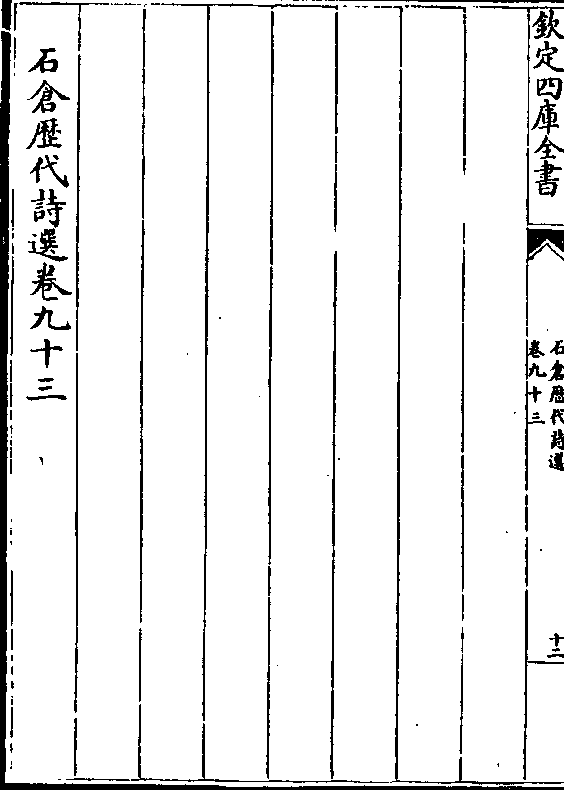 欽定四庫全書
石倉歴代詩選
卷九十三
十二
石倉歴代詩選卷九十三